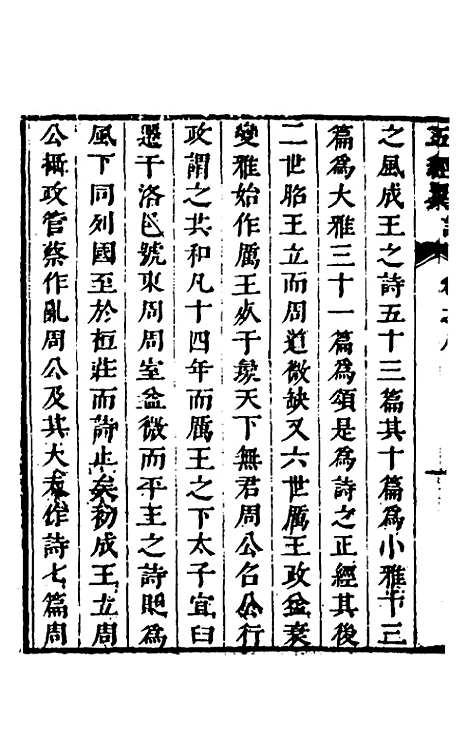 五經 卷之八 一
之風成王之詩五十三篇其十篇為小雅十二
篇為大雅三十一篇為頌是為詩之正經其後
二世昭王立而周道微缺又六世厲王政益衰
變雅始作厲王奴于彘天下無君周公召公行
政謂之共和凡十四年而厲王之下太子宜臼
遷于洛邑號東周周室益微而平王之詩貶為
風下同列國至於桓莊而詩止矣初成王立周
公攝政管蔡作亂周公及其大夫作詩七篇周